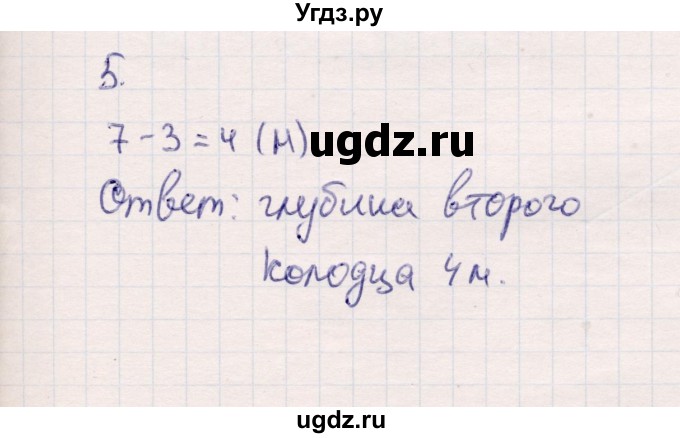 Угдз.ру
5.
7-3=4 (м)
ugdz.ru
Ответ: глубина второго
колодца 4 м.
ugdz.ru